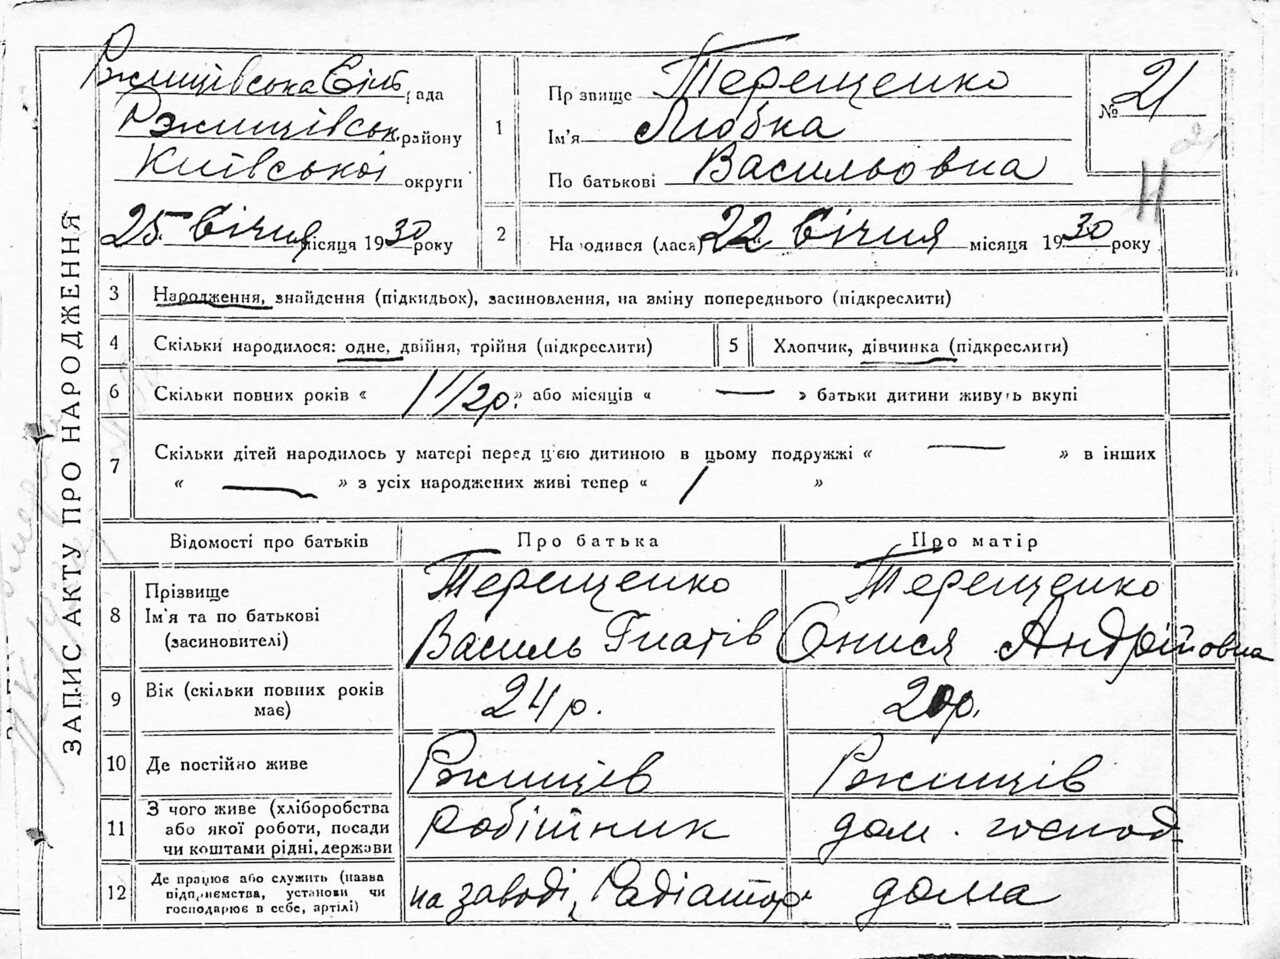 ЗАПИС АКТУ ПРО НАРОДЖЕННЯ
Ржищівська Сіль рада
Ржищівськ. району
Київської округи
25 Січня місяця 1930 року
1
Прзвище Терещенко
Ім'я Любка
По батькові Васильовна
№ 21
Н
2
На одився (лася) 22 Січня місяця 1930 року
3 Народження, знайдення (підкидьок), засиновлення, на зміну попереднього (підкреслити)
4 Скільки народилося: одне, двійня, трійня (підкреслити)
5 Хлопчик, дівчинка (підкреслити)
6 Скільки повних років « 1 1/2 р. » або місяців « — » батьки дитини живуть вкупі
7 Скільки дітей народилось у матері перед цією дитиною в цьому подружжі « — » в інших
« — » з усіх народжених живі тепер « 1 »
Відомості про батьків Про батька Про матір
8 Прізвище
Ім'я та по батькові
(засиновителі)
Терещенко
Василь Гнатів
Терещенко
Онися Андрійовна
9 Вік (скільки повних років
має)
24 р. 20 р.
10 Де постійно живе Ржищів Ржищів
11 З чого живе (хліборобства
або якої роботи, посади
чи коштами рідні, держави
робітник дом. господ.
12 Де працює або служить (назва
підприємства, установи чи
господарює в себе, артілі)
на заводі „Радіатор" дома